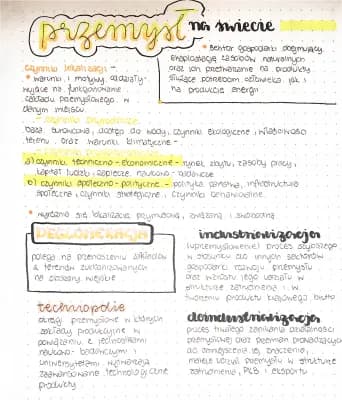 przemysł na świecie
• sektor gospodarki obejmujący
eksploatację zasobów naturalnych
oraz ich przetwarzanie na produkty
służące potrzebom człowieka jak i
na produkcję energii
czynniki lokalizacji -
• warunki i motywy oddziały-
wujące na funkcjonowanie
zakładu przemysłowego w
danym miejscu.
- czynniki przyrodnicze -
baza surowcowa, dostęp do wody, czynniki ekologiczne, właściwości
terenu, oraz warunki klimatyczne -
a) czynniki techniczno-ekonomiczne - rynek zbytu, zasoby pracy,
kapitał ludzki, zaplecze naukowo-badawcze
b) czynniki społeczno-polityczne - polityka państwa, infrastruktura
społeczna, czynniki strategiczne, czynniki behawioralne.
• wyróżnia się lokalizację przymusową, związaną i swobodną
DEGLOMERACJA
polega na przenoszeniu zakładów
z terenów zurbanizowanych
na obszary wiejskie
industrializacja
(uprzemysłowienie) proces szybszego
w stosunku do innych sektorów
gospodarki rozwoju przemysłu
oraz wzrostu jego udziału w
strukturze zatrudnienia i w
tworzeniu produktu krajowego brutto
technopolie
okręgi przemysłowe w których
zakłady produkcyjne w
powiązaniu z jednostkami
naukowo-badawczymi i
uniwersytetami wytwarzają
zaawansowane technologicznie
produkty
dezindustrializacja
proces trwałego zanikania działalności
przemysłowej oraz przemian prowadzących
do zmniejszenia jej znaczenia,
maleje udział przemysłu w strukturze
zatrudnienia, PKB i eksportu